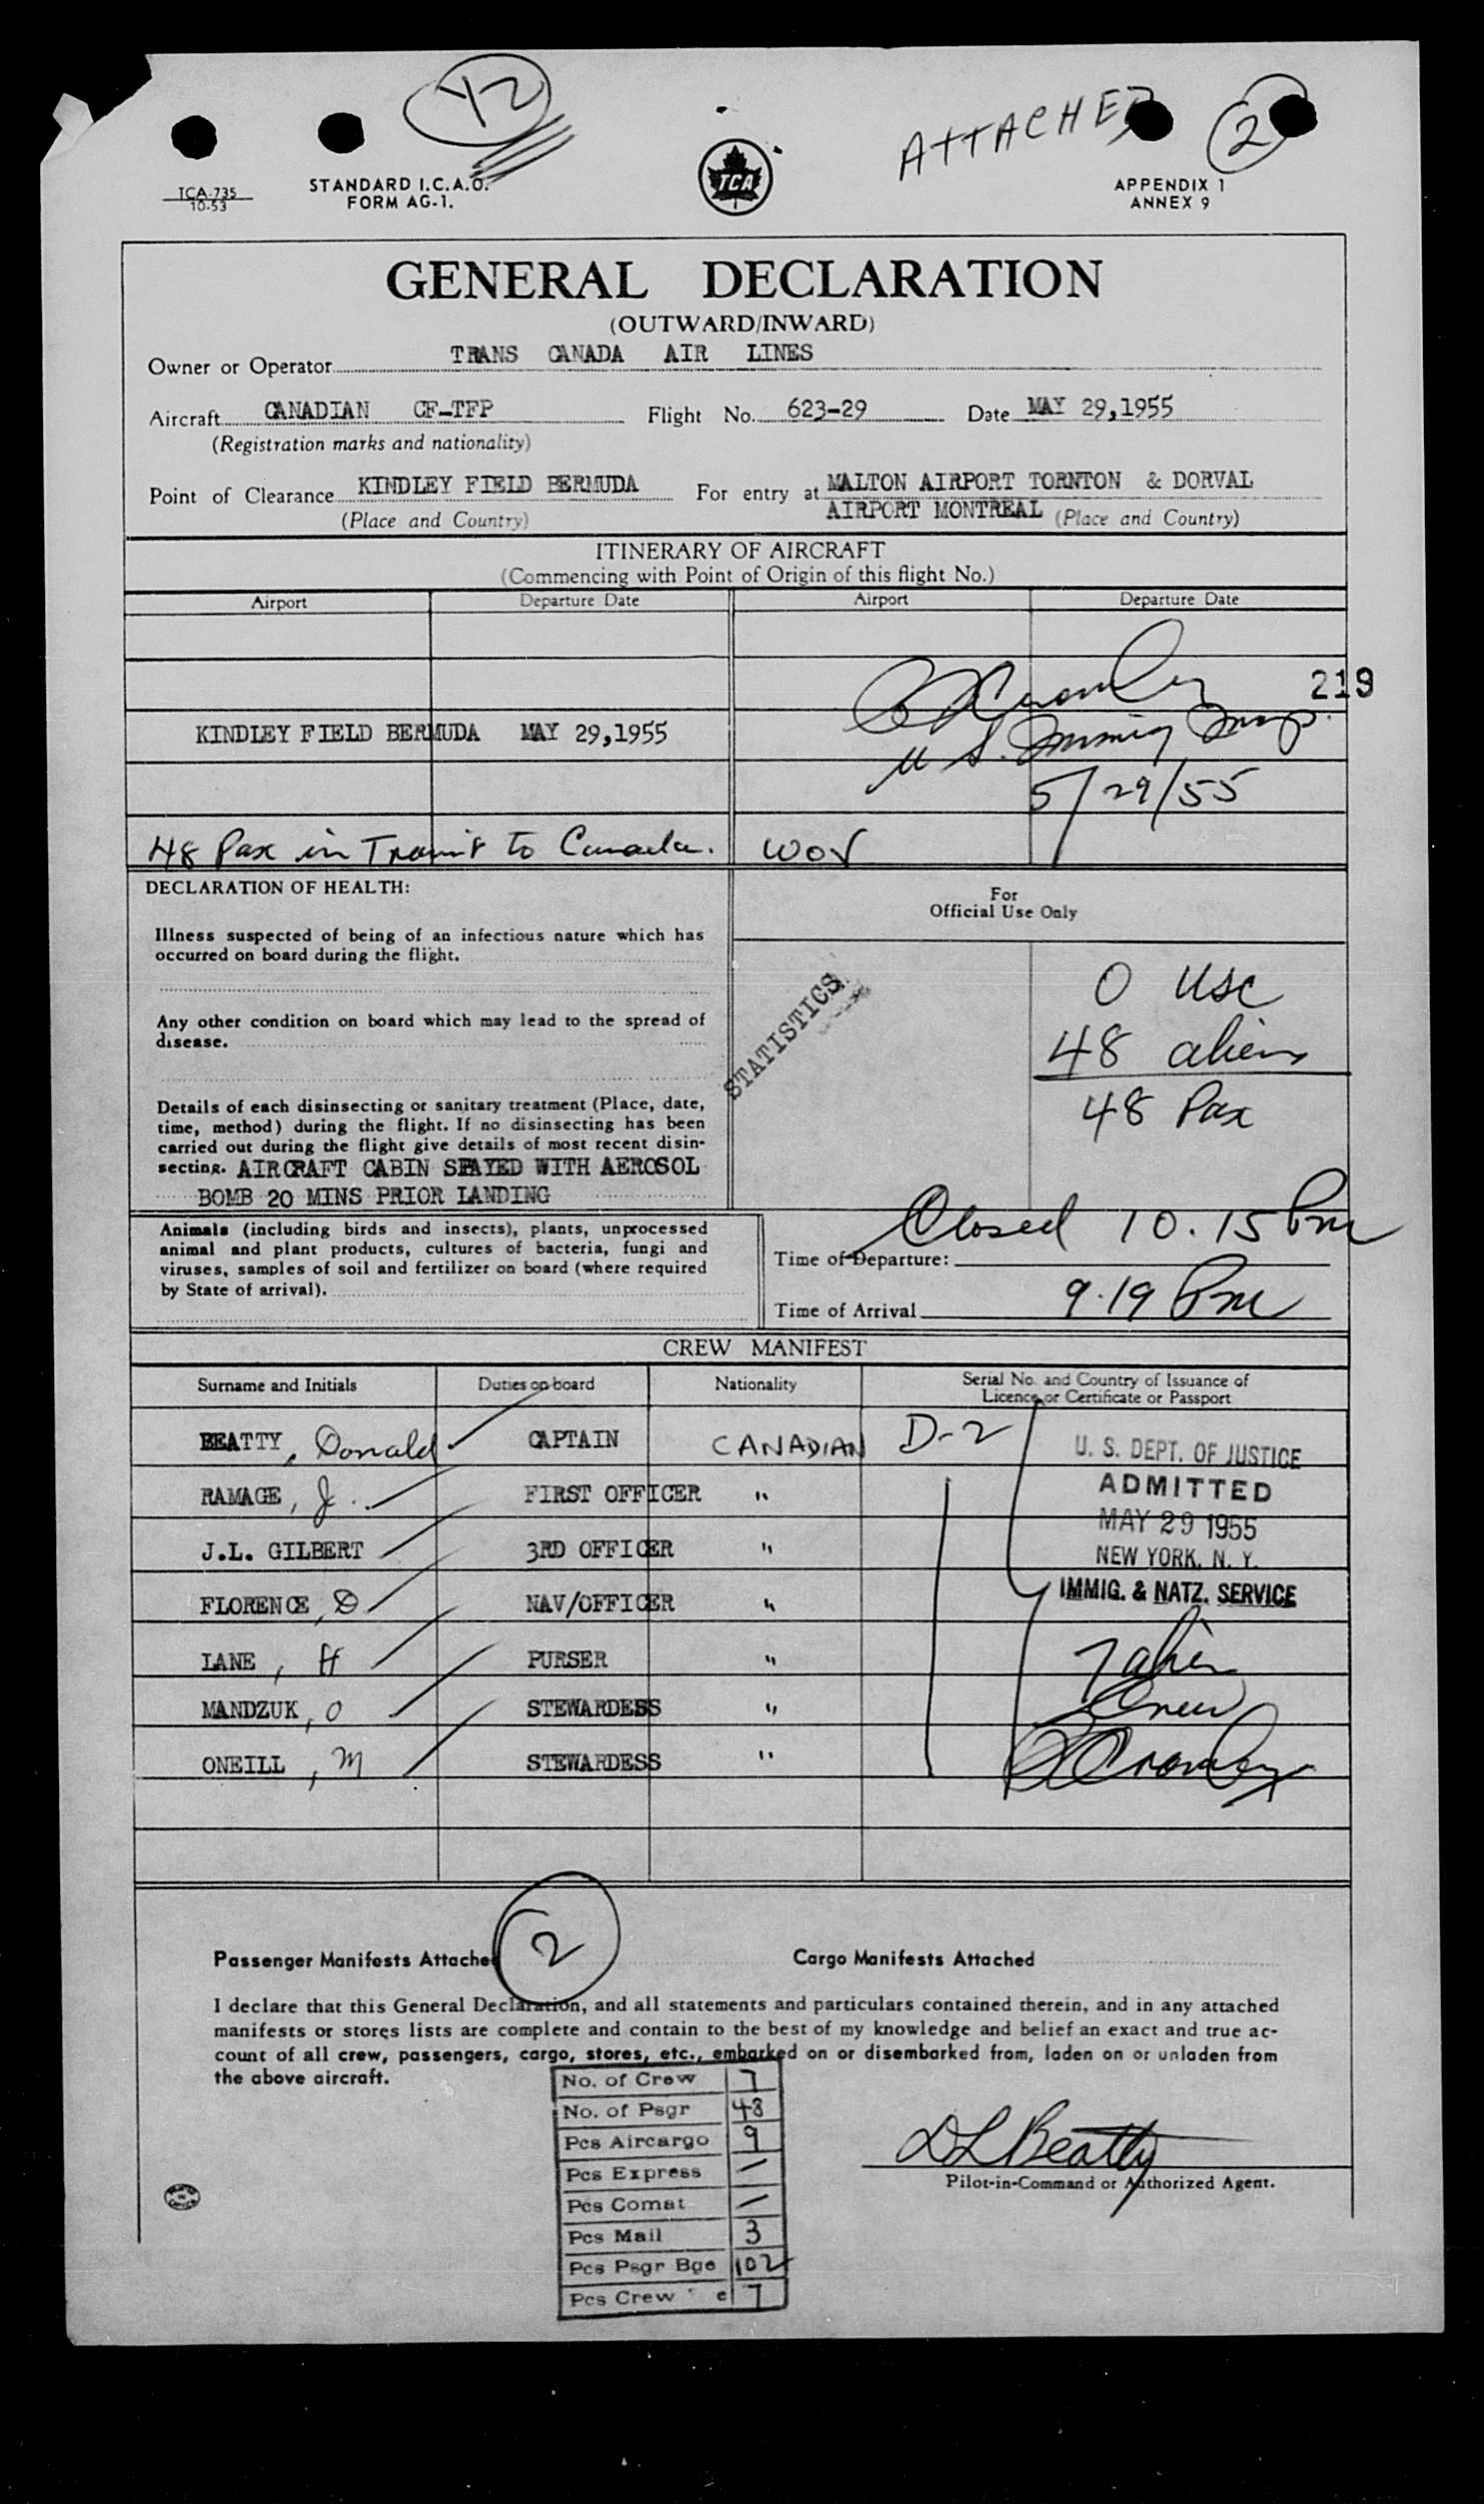 42
ATTACHED 2
TCA-735
10-53
STANDARD I.C.A.O.
FORM AG-1.
TCA
APPENDIX 1
ANNEX 9
GENERAL DECLARATION
(OUTWARD/INWARD)
Owner or Operator TRANS CANADA AIR LINES
Aircraft CANADIAN CF-TFP Flight No. 623-29 Date MAY 29,1955
(Registration marks and nationality)
Point of Clearance KINDLEY FIELD BERMUDA For entry at MALTON AIRPORT TORNTON & DORVAL
AIRPORT MONTREAL
(Place and Country) (Place and Country)
ITINERARY OF AIRCRAFT
(Commencing with Point of Origin of this flight No.)
Airport Departure Date Airport Departure Date
219
KINDLEY FIELD BERMUDA MAY 29,1955
U S. Immig Insp.
5/29/55
48 Pax in Transit to Canada.
DECLARATION OF HEALTH:
Illness suspected of being of an infectious nature which has
occurred on board during the flight.
Any other condition on board which may lead to the spread of
disease.
Details of each disinsecting or sanitary treatment (Place, date,
time, method) during the flight. If no disinsecting has been
carried out during the flight give details of most recent disin-
secting. AIRCRAFT CABIN SPAYED WITH AEROSOL
BOMB 20 MINS PRIOR LANDING
For
Official Use Only
STATISTICS
0 USC
48 aliens
48 Pax
Animals (including birds and insects), plants, unprocessed
animal and plant products, cultures of bacteria, fungi and
viruses, samples of soil and fertilizer on board (where required
by State of arrival).
Closed 10.15 Pm
Time of Departure:
Time of Arrival 9.19 Pm
CREW MANIFEST
Surname and Initials Duties on board Nationality Serial No. and Country of Issuance of
Licence or Certificate or Passport
BEATTY, Donald CAPTAIN CANADIAN D-2
RAMAGE, J. FIRST OFFICER "
J.L. GILBERT 3RD OFFICER "
FLORENCE, D NAV/OFFICER "
LANE, H PURSER "
MANDZUK, O STEWARDESS "
ONEILL, M STEWARDESS "
U. S. DEPT. OF JUSTICE
ADMITTED
MAY 29 1955
NEW YORK, N. Y.
IMMIG. & NATZ. SERVICE
7 alien
Crew
Passenger Manifests Attached 2 Cargo Manifests Attached
I declare that this General Declaration, and all statements and particulars contained therein, and in any attached
manifests or stores lists are complete and contain to the best of my knowledge and belief an exact and true ac-
count of all crew, passengers, cargo, stores, etc., embarked on or disembarked from, laden on or unladen from
the above aircraft.
No. of Crew 7
No. of Psgr 48
Pcs Aircargo 9
Pcs Express /
Pcs Comat /
Pcs Mail 3
Pcs Psgr Bge 102
Pcs Crew e 7
DL Beatty
Pilot-in-Command or Authorized Agent.